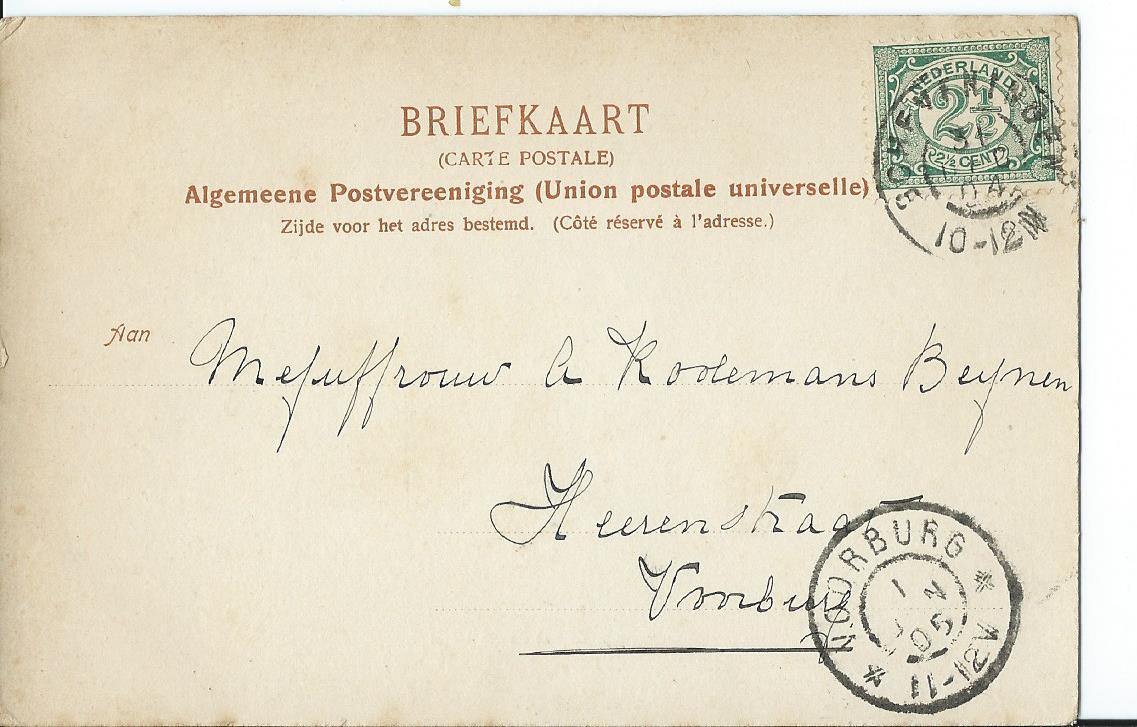 BRIEFKAART
(CARTE POSTALE)
Algemeene Postvereeniging (Union postale universelle)
Zijde voor het adres bestemd. (Côté réservé à l'adresse.)
NEDERLAND
2 1/2
2½ CENT
SCHEVENINGEN
31 DEC 04
10-12N
Aan
Mejuffrouw A Koolemans Beijnen
Heerenstraat
Voorburg
VOORBURG
1 JAN 05
11-12V